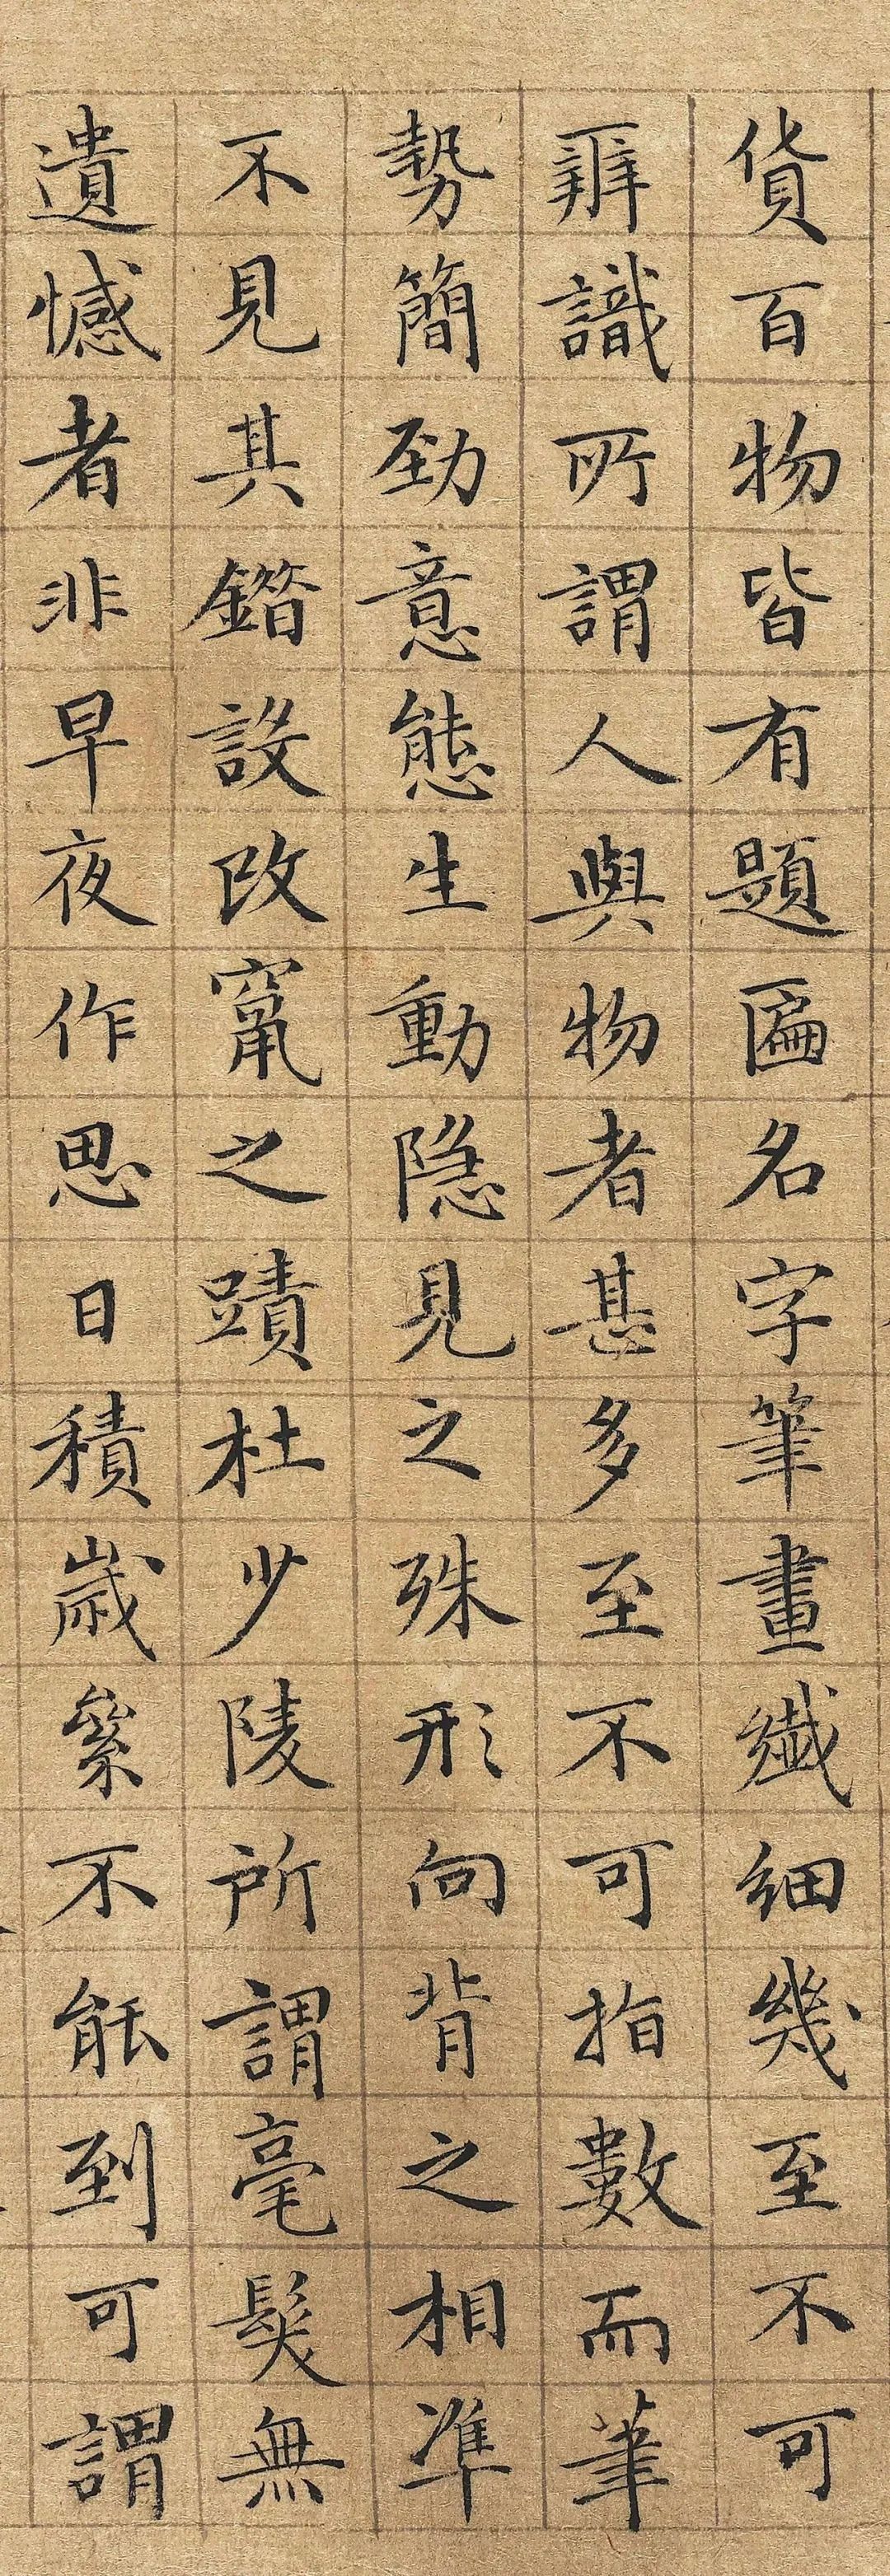 貨百物皆有題匾名字筆畫纖細幾至不可
辨識所謂人與物者甚多至不可指數而筆
勢簡勁意態生動隱見之殊形向背之相準
不見其鐕設改竄之蹟杜少陵所謂毫髮無
遺憾者非早夜作思日積歲絫不能到可謂